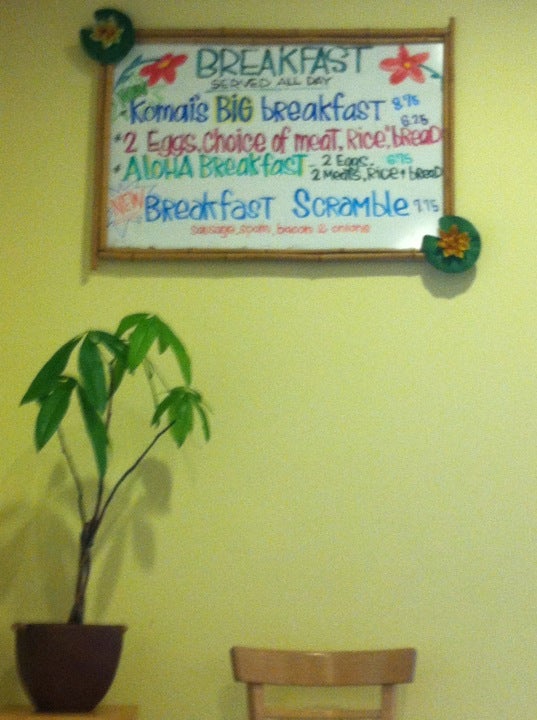 BREAKFAST
SERVED ALL DAY
NEW
Komai's BIG breakfast 8.95
6.25
* 2 Eggs, Choice of meat, Rice, bread
* ALOHA BREAKfAST - 2 Eggs. 6.95
2 Meats, Rice + bread
NEW Breakfast Scramble 7.75
sausage, spam, bacon & onions